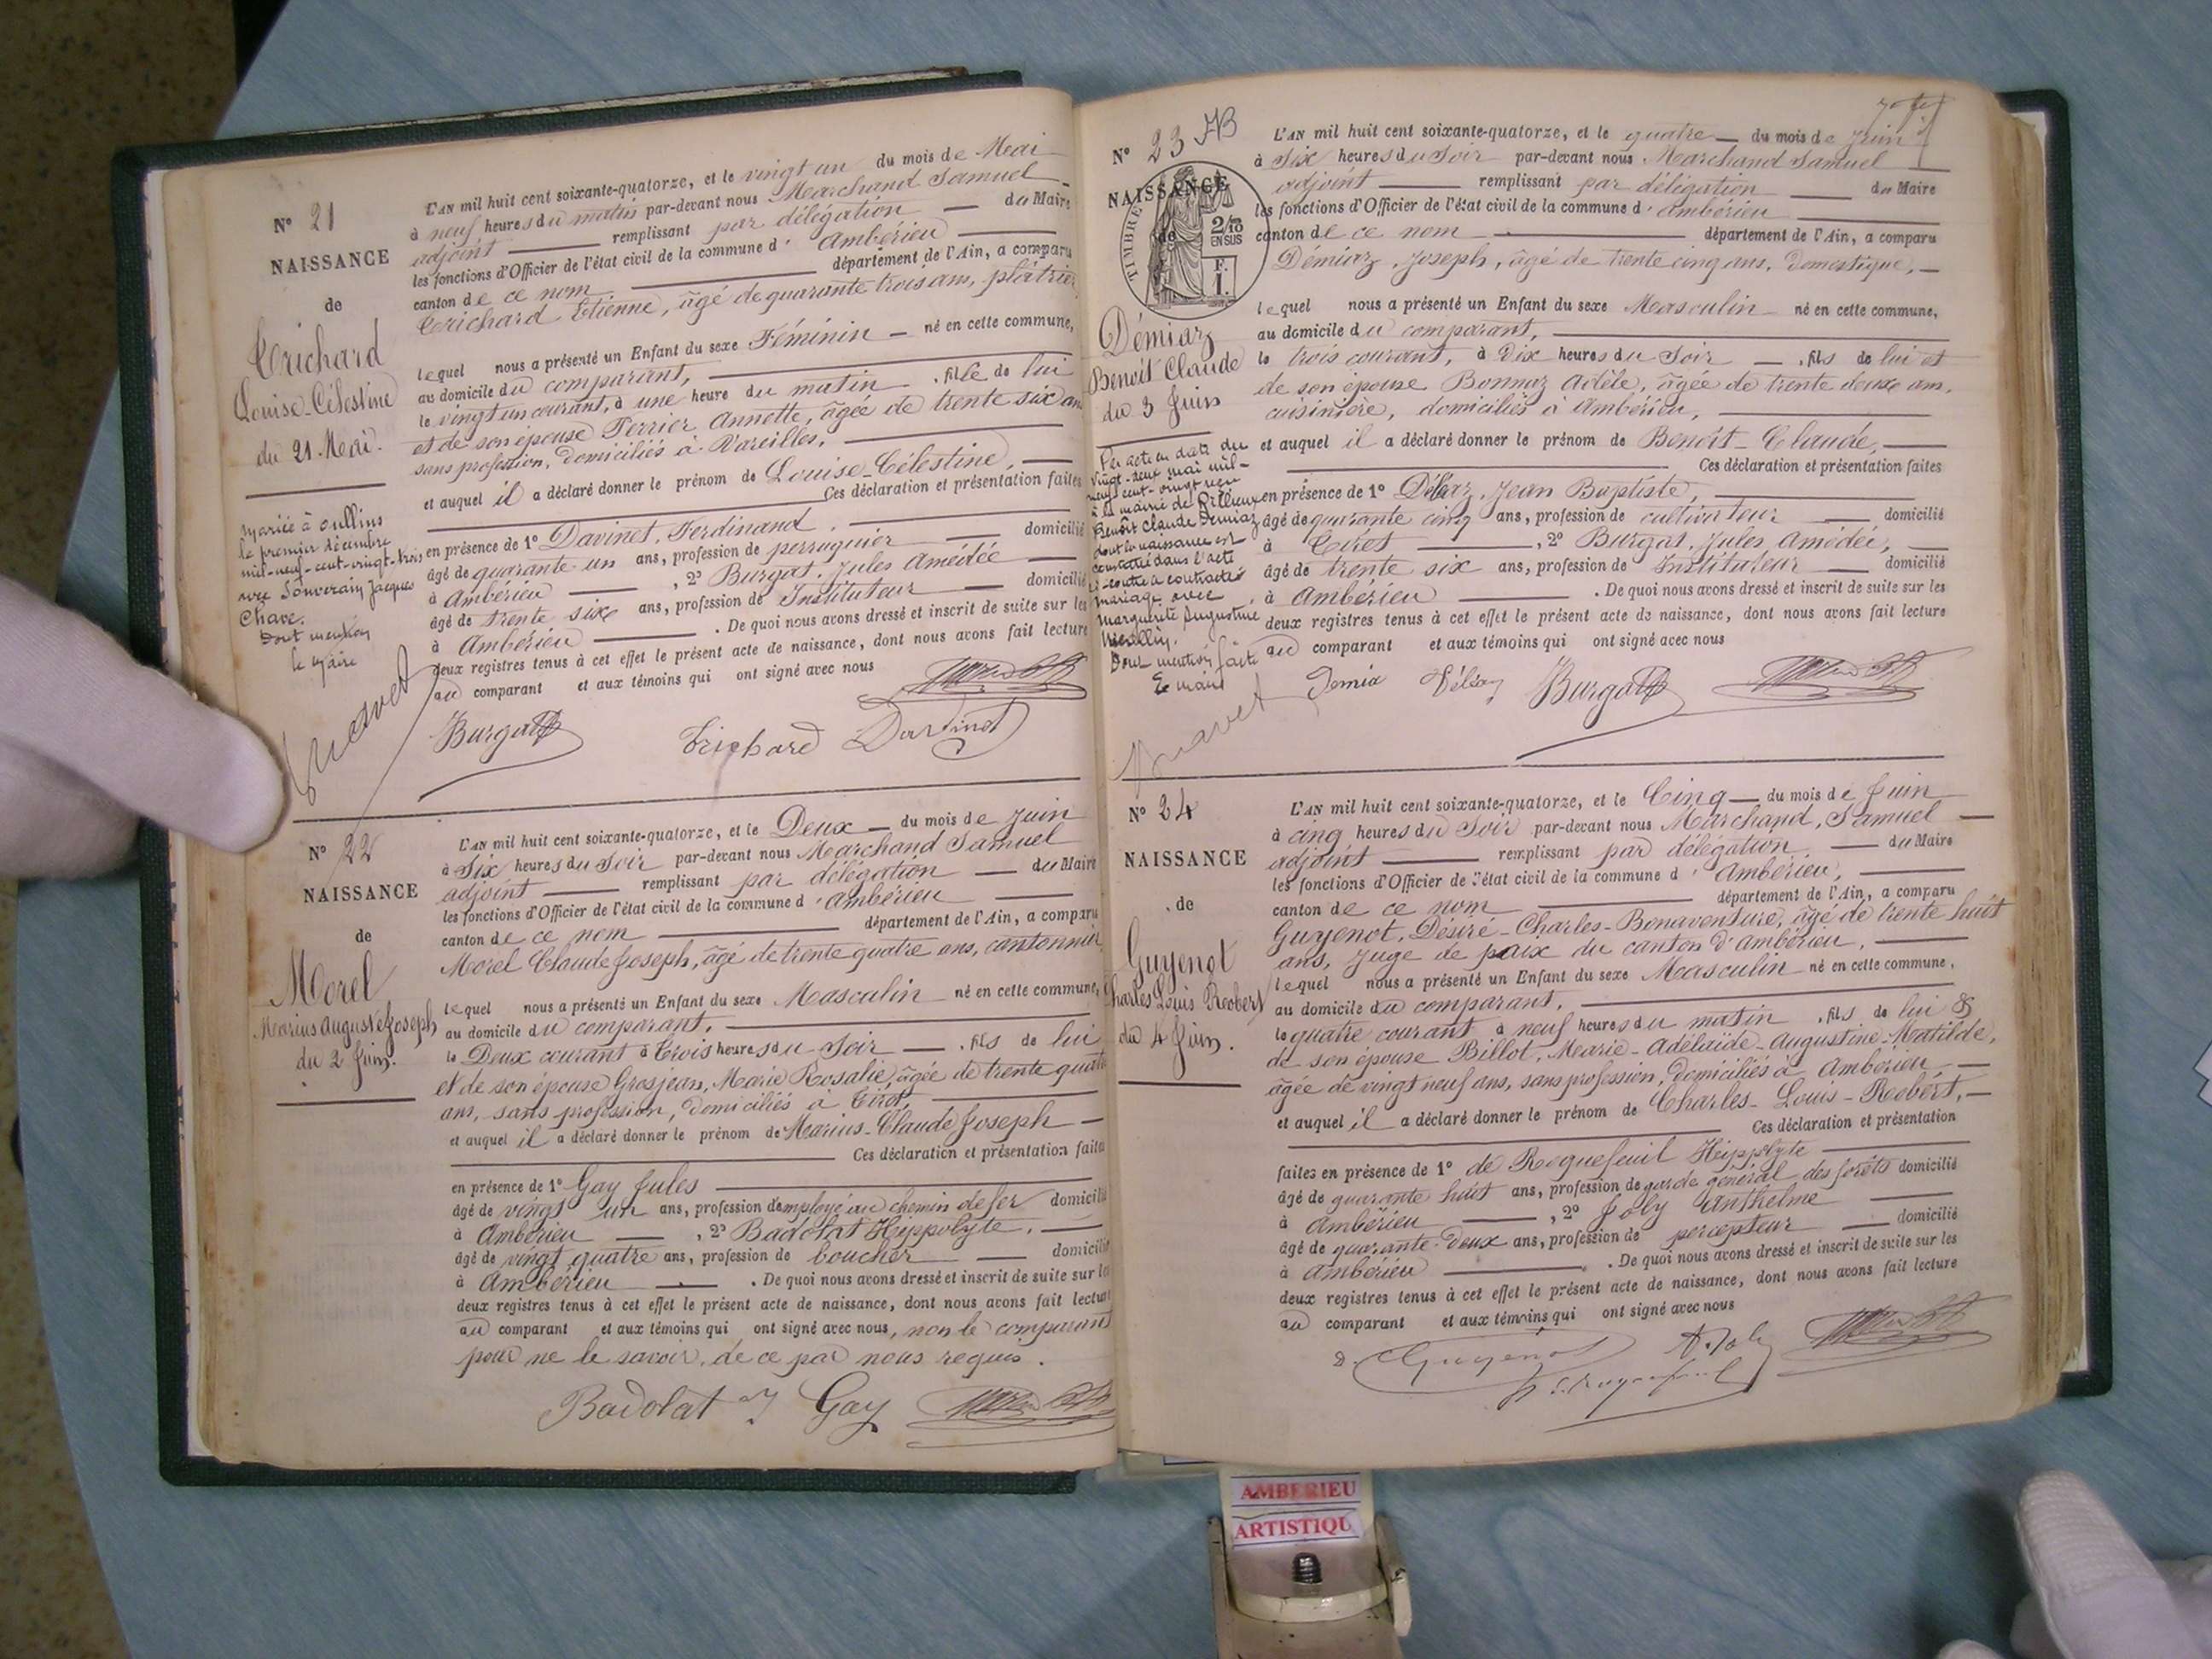 N° 21
NAISSANCE
de
Trichard
Louise-Célestine
du 21 Mai.
Mariée à Oullins
le premier décembre
mil-neuf-cent-vingt-trois
avec Souverain Jacques
Chave.
Dont mention
le Maire
L'AN mil huit cent soixante-quatorze, et le vingt un du mois de Mai
à neuf heures du matin par-devant nous Marchand Samuel
adjoint remplissant par délégation du Maire
les fonctions d'Officier de l'état civil de la commune d'Ambérieu
canton de ce nom département de l'Ain, a comparu
Trichard Etienne, âgé de quarante trois ans, plâtrier
lequel nous a présenté un Enfant du sexe Féminin né en cette commune,
au domicile du comparant,
le vingt un courant, à une heure du matin, fille de lui
et de son épouse Perrier Annette, âgée de trente six ans
sans profession, domiciliés à Vareilles,
et auquel il a déclaré donner le prénom de Louise-Célestine,
Ces déclaration et présentation faites
en présence de 1° Davinet, Ferdinand,
âgé de quarante un ans, profession de perruquier domicilié
à Ambérieu, 2° Burgat, Jules Amédée
âgé de trente six ans, profession de Instituteur domicilié
à Ambérieu. De quoi nous avons dressé et inscrit de suite sur les
deux registres tenus à cet effet le présent acte de naissance, dont nous avons fait lecture
au comparant et aux témoins qui ont signé avec nous
Burgat Trichard Davinet
N° 22
NAISSANCE
de
Morel
Marius Auguste Joseph
du 2 Juin.
L'AN mil huit cent soixante-quatorze, et le Deux du mois de Juin
à Six heures du Soir par-devant nous Marchand Samuel
adjoint remplissant par délégation du Maire
les fonctions d'Officier de l'état civil de la commune d'Ambérieu
canton de ce nom département de l'Ain, a comparu
Morel Claude Joseph, âgé de trente quatre ans, cantonnier
lequel nous a présenté un Enfant du sexe Masculin né en cette commune,
au domicile du comparant,
le Deux courant à Trois heures du Soir, fils de lui
et de son épouse Grosjean, Marie Rosalie, âgée de trente quatre
ans, sans profession, domiciliés à Tiret,
et auquel il a déclaré donner le prénom de Marius-Claude Joseph
Ces déclaration et présentation faites
en présence de 1° Gay Jules
âgé de vingt un ans, profession d'employé au chemin de fer domicilié
à Ambérieu, 2° Badolat Hyppolyte,
âgé de vingt quatre ans, profession de boucher domicilié
à Ambérieu. De quoi nous avons dressé et inscrit de suite sur les
deux registres tenus à cet effet le présent acte de naissance, dont nous avons fait lecture
au comparant et aux témoins qui ont signé avec nous, non le comparant
pour ne le savoir, de ce par nous requis.
Badolat Gay
N° 23
NAISSANCE
de
TIMBRE
2/10
EN SUS
F.
1.
Démiaz
Benoît Claude
du 3 Juin
Par acte en date du
vingt-deux mai mil-
neuf cent-vingt
à la mairie de Rillieux
Benoît Claude Démiaz
dont la naissance est
constatée dans l'acte
ci-contre a contracté
mariage avec
Marguerite Augustine
Dont mention faite
Le maire
L'AN mil huit cent soixante-quatorze, et le quatre du mois de Juin
à Six heures du Soir par-devant nous Marchand Samuel
adjoint remplissant par délégation du Maire
les fonctions d'Officier de l'état civil de la commune d'Ambérieu
canton de ce nom département de l'Ain, a comparu
Démiaz, Joseph, âgé de trente cinq ans, domestique,
lequel nous a présenté un Enfant du sexe Masculin né en cette commune,
au domicile du comparant,
le trois courant, à Dix heures du Soir, fils de lui et
de son épouse Bonnaz Adèle, âgée de trente deux ans,
cuisinière, domiciliés à Ambérieu,
et auquel il a déclaré donner le prénom de Benoît-Claude,
Ces déclaration et présentation faites
en présence de 1° Déléaz, Jean Baptiste,
âgé de quarante cinq ans, profession de cultivateur domicilié
à Tiret, 2° Burgat, Jules Amédée,
âgé de trente six ans, profession de Instituteur domicilié
à Ambérieu. De quoi nous avons dressé et inscrit de suite sur les
deux registres tenus à cet effet le présent acte de naissance, dont nous avons fait lecture
au comparant et aux témoins qui ont signé avec nous
Demia Déléaz Burgat
N° 24
NAISSANCE
de
Guyenot
Charles Louis Robert
du 4 Juin.
L'AN mil huit cent soixante-quatorze, et le Cinq du mois de Juin
à cinq heures du Soir par-devant nous Marchand, Samuel
adjoint remplissant par délégation du Maire
les fonctions d'Officier de l'état civil de la commune d'Ambérieu,
canton de ce nom département de l'Ain, a comparu
Guyenot, Désiré-Charles-Bonaventure, âgé de trente huit
ans, Juge de paix du canton d'Ambérieu,
lequel nous a présenté un Enfant du sexe Masculin né en cette commune,
au domicile du comparant,
le quatre courant à neuf heures du matin, fils de lui &
de son épouse Billot, Marie-Adélaïde-Augustine-Matilde,
âgée de vingt neuf ans, sans profession, domiciliés à Ambérieu
et auquel il a déclaré donner le prénom de Charles-Louis-Robert,
Ces déclaration et présentation
faites en présence de 1° de Roquefeuil Hippolyte
âgé de quarante huit ans, profession de garde général des forêts domicilié
à Ambérieu, 2° Joly Anthelme
âgé de quarante-deux ans, profession de percepteur domicilié
à Ambérieu. De quoi nous avons dressé et inscrit de suite sur les
deux registres tenus à cet effet le présent acte de naissance, dont nous avons fait lecture
au comparant et aux témoins qui ont signé avec nous
D. Guyenot A. Joly
AMBERIEU
ARTISTIQU